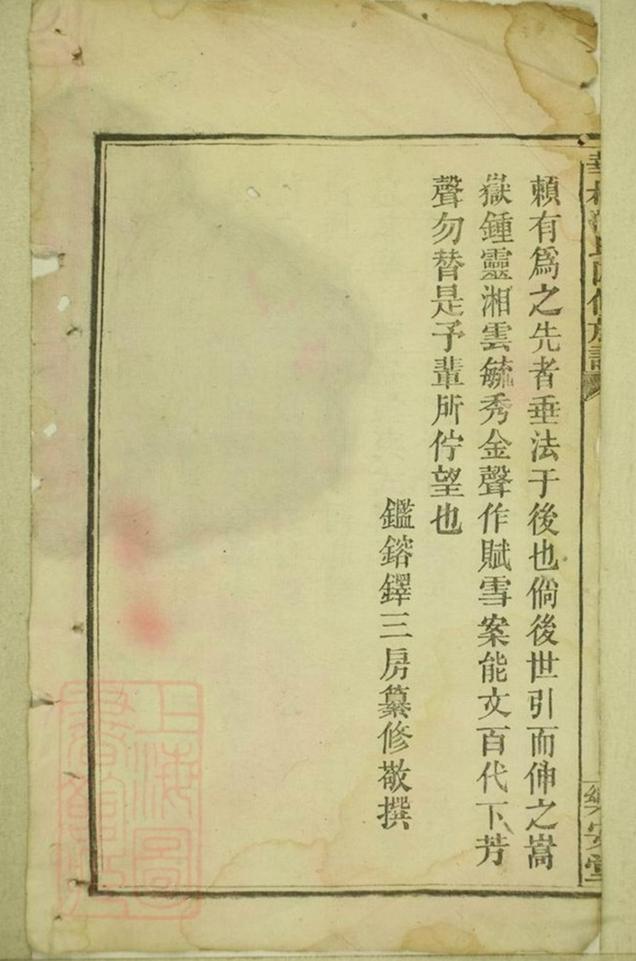 賴有爲之先者垂法于後也倘後世引而伸之嵩
嶽鍾靈湘雲毓秀金聲作賦雪案能文百代下芳
聲勿替是予輩所佇望也
鑑鎔鐸三房纂修敬撰
樂安堂
上海圖
書館藏